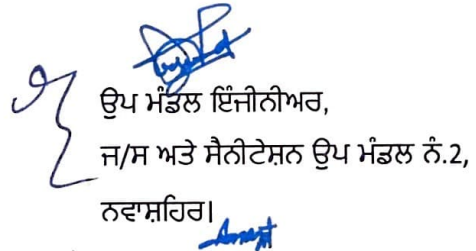 ਉਪ ਮੰਡਲ ਇੰਜੀਨੀਅਰ,
ਜ/ਸ ਅਤੇ ਸੈਨੀਟੇਸ਼ਨ ਉਪ ਮੰਡਲ ਨੰ.2,
ਨਵਾਸ਼ਹਿਰ।